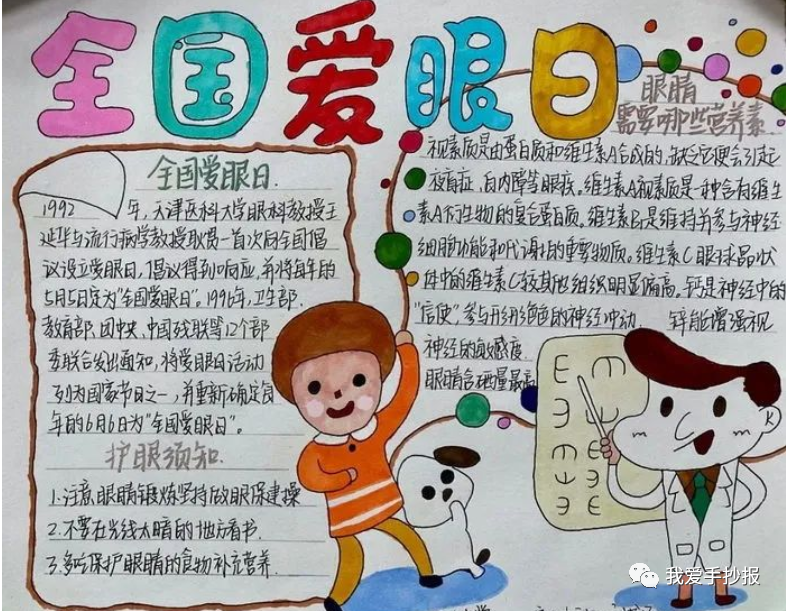 全国爱眼日
全国爱眼日
1992年,天津医科大学眼科教授王
延华与流行病学教授耿贯一首次向全国倡
议设立爱眼日,倡议得到响应,并将每年的
5月5日定为“全国爱眼日”。1996年,卫生部、
教育部、团中央、中国残联等12个部
委联合发出通知,将爱眼日活动
列为国家节日之一,并重新确定每
年的6月6日为“全国爱眼日”。
护眼须知
1.注意眼睛锻炼坚持做眼保建操
2.不要在光线太暗的地方看书.
3.多吃保护眼睛的食物补充营养.
眼睛
需要哪些营养素
视素质是由蛋白质和维生素A合成的,缺乏它便会引起
夜盲症,白内障等眼疾。维生素A视素质是一种含有维生
素A衍生物的复合蛋白质。维生素B₁是维持并参与神经
细胞功能和代谢的重要物质。维生素C眼球晶状
体中的维生素C较其他组织明显偏高。钙是神经中的
“信使”,参与形形色色的神经冲动. 锌能增强视
神经的敏感度.
眼睛含硒量最高
我爱手抄报